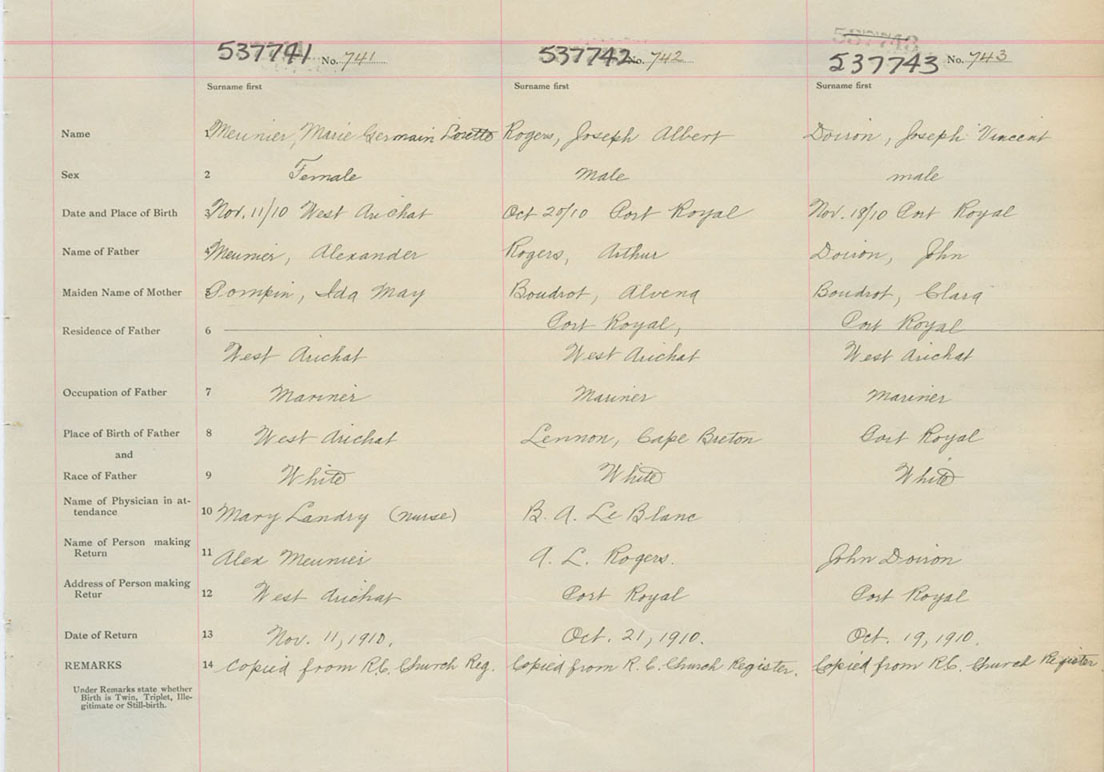 537741 No. 741 537742 No. 742 537743 No. 743
Surname first Surname first Surname first
Name 1 Meunier, Marie Germain Lorette Rogers, Joseph Albert Doiron, Joseph Vincent
Sex 2 Female male male
Date and Place of Birth 3 Nov. 11/10 West Arichat Oct 20/10 Port Royal Nov. 18/10 Port Royal
Name of Father 4 Meunier, Alexander Rogers, Arthur Doiron, John
Maiden Name of Mother 5 Pompin, Ida May Boudrot, Alvena Boudrot, Clara
Port Royal, Port Royal
Residence of Father 6
West Arichat West Arichat West Arichat
Occupation of Father 7 Mariner Mariner Mariner
Place of Birth of Father 8 West Arichat Lennon, Cape Breton Port Royal
and
Race of Father 9 White White White
Name of Physician in at-
tendance 10 Mary Landry (nurse) B. A. Le Blanc
Name of Person making
Return 11 Alex Meunier A. L. Rogers. John Doiron
Address of Person making
Retur 12 West Arichat Port Royal Port Royal
Date of Return 13 Nov. 11, 1910. Oct. 21, 1910. Oct. 19, 1910.
REMARKS 14 Copied from R.C. Church Reg. Copied from R.C. Church Register. Copied from R.C. Church Register
Under Remarks state whether
Birth is Twin, Triplet, Ille-
gitimate or Still-birth.